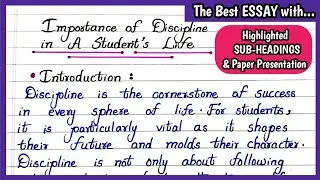 The Best ESSAY with...
Highlighted
SUB-HEADINGS
& Paper Presentation
Importance of Discipline
in A Student's Life
• Introduction :
Discipline is the cornerstone of success
in every sphere of life. For students,
it is particularly vital as it shapes
their future and molds their character.
Discipline is not only about following